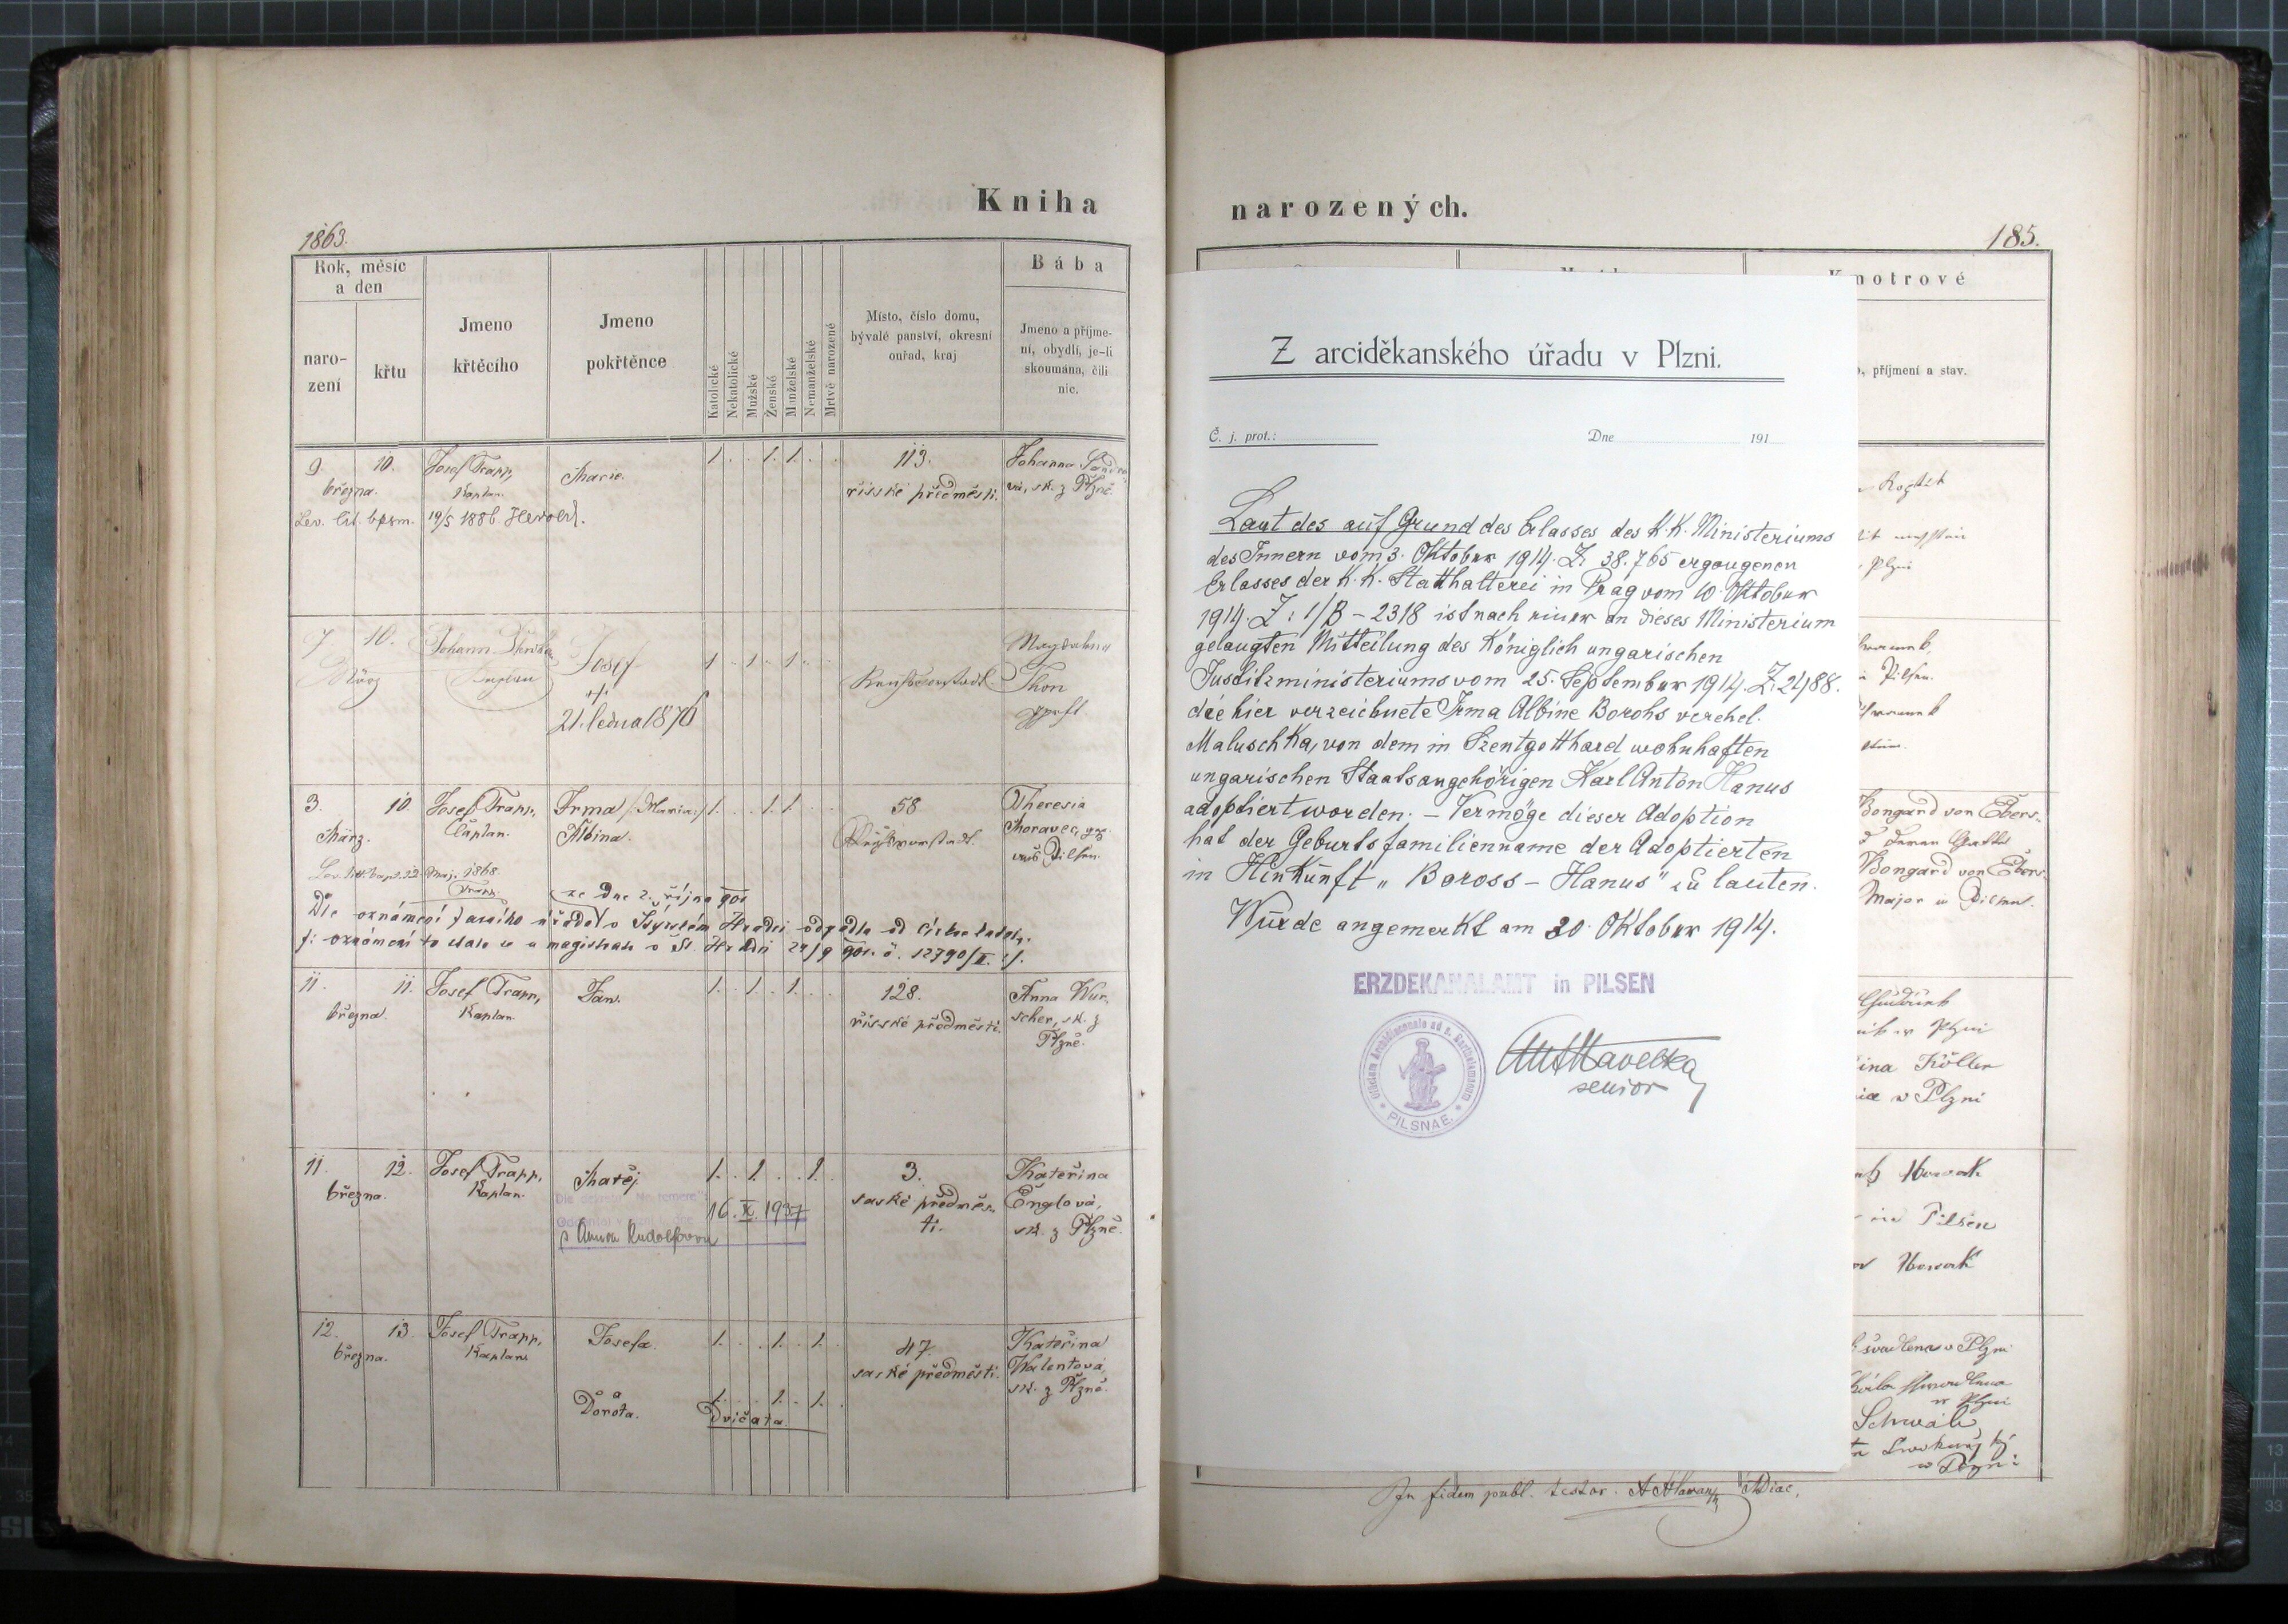 Kniha
narozených.
1863.
185.
Rok, měsíc
a den
naro-
zení
křtu
Jmeno
křtěcího
Jmeno
pokřtěnce
Katolické
Nekatolické
Mužské
Ženské
Manželské
Nemanželské
Mrtvě narozené
Místo, číslo domu,
bývalé panství, okresní
ouřad, kraj
Bába
Jmeno a příjme-
ní, obydlí, je-li
skoumána, čili
nic.
9. 10. Josef Trapp, Marie. 1. 1. 1. 113. Johanna
března. Kaplan. říšské předměstí. vá, sk. z Plzně.
Lev. lit. bpsm. 19/5 1886. Herold.
7. 10. Johann
März Kaplan
Josef 1 1 1
+
21. ledna 1876
Magdalena
Thon
gprft
3. 10. Josef Trapp, Irma /:Maria:/ 1. 1. 1. 58 Theresia
März. Caplan. Albina. Moravec, gp.
aus Pilsen.
Lev. litt. bapt. 22. Maj. 1868.
Trapp.
ze dne 2. října 901
Dle oznámení farního úřadu o odpadla od církve katol.
/: oznámení to stalo se u magistrátu 24/9 901. č. 12790/II. :/.
11. 11. Josef Trapp, Jan. 1. 1. 1. 128. Anna Wur-
března. Kaplan. říšské předměstí. scher, sk. z
Plzně.
11. 12. Josef Trapp, Matěj. 1. 1. 1. 3. Kateřina
března. Kaplan. saské předměs- Englová,
tí. sk. z Plzně.
16. X. 1937
s Annou Rudolfovou
12. 13. Josef Trapp, Josefa. 1. 1. 1. 47. Kateřina
března. Kaplan. saské předměstí. Walentová,
sk. z Plzně.
a
Dorota. 1. 1. 1.
Dvičata.
Kmotrové
příjmení a stav.
Z arciděkanského úřadu v Plzni.
Č. j. prot.: Dne 191
Laut des auf Grund des Erlasses des K.K. Ministeriums
des Innern vom 3. Oktober 1914. Z: 38.765 ergangenen
Erlasses der K.K. Statthalterei in Prag vom 10. Oktober
1914. Z: 1/B – 2318 ist nach einer an dieses Ministerium
gelangten Mitteilung des Königlich ungarischen
Justitzministeriums vom 25. September 1914. Z: 2488.
die hier verzeichnete Irma Albine Borohs verehel.
Maluschka, von dem in Szentgotthard wohnhaften
ungarischen Staatsangehörigen Karl Anton Hanus
adoptiert worden. – Vermöge dieser Adoption
hat der Geburtsfamilienname der Adoptierten
in Hinkunft „Boross – Hanus" zu lauten.
Wurde angemerkt am 30. Oktober 1914.
ERZDEKANALAMT in PILSEN
PILSNAE.
Ant Havelka
senior
Plzni
Pilsen.
Bongard von Ebers-
deren Gattin
Bongard von Ebers-
Major in Pilsen.
Plzni
Köller
w Plzni
Nowak
in Pilsen
Nowak
švadlena w Plzni
w Plzni
Schwab
w Plzni
In fidem publ. testor.